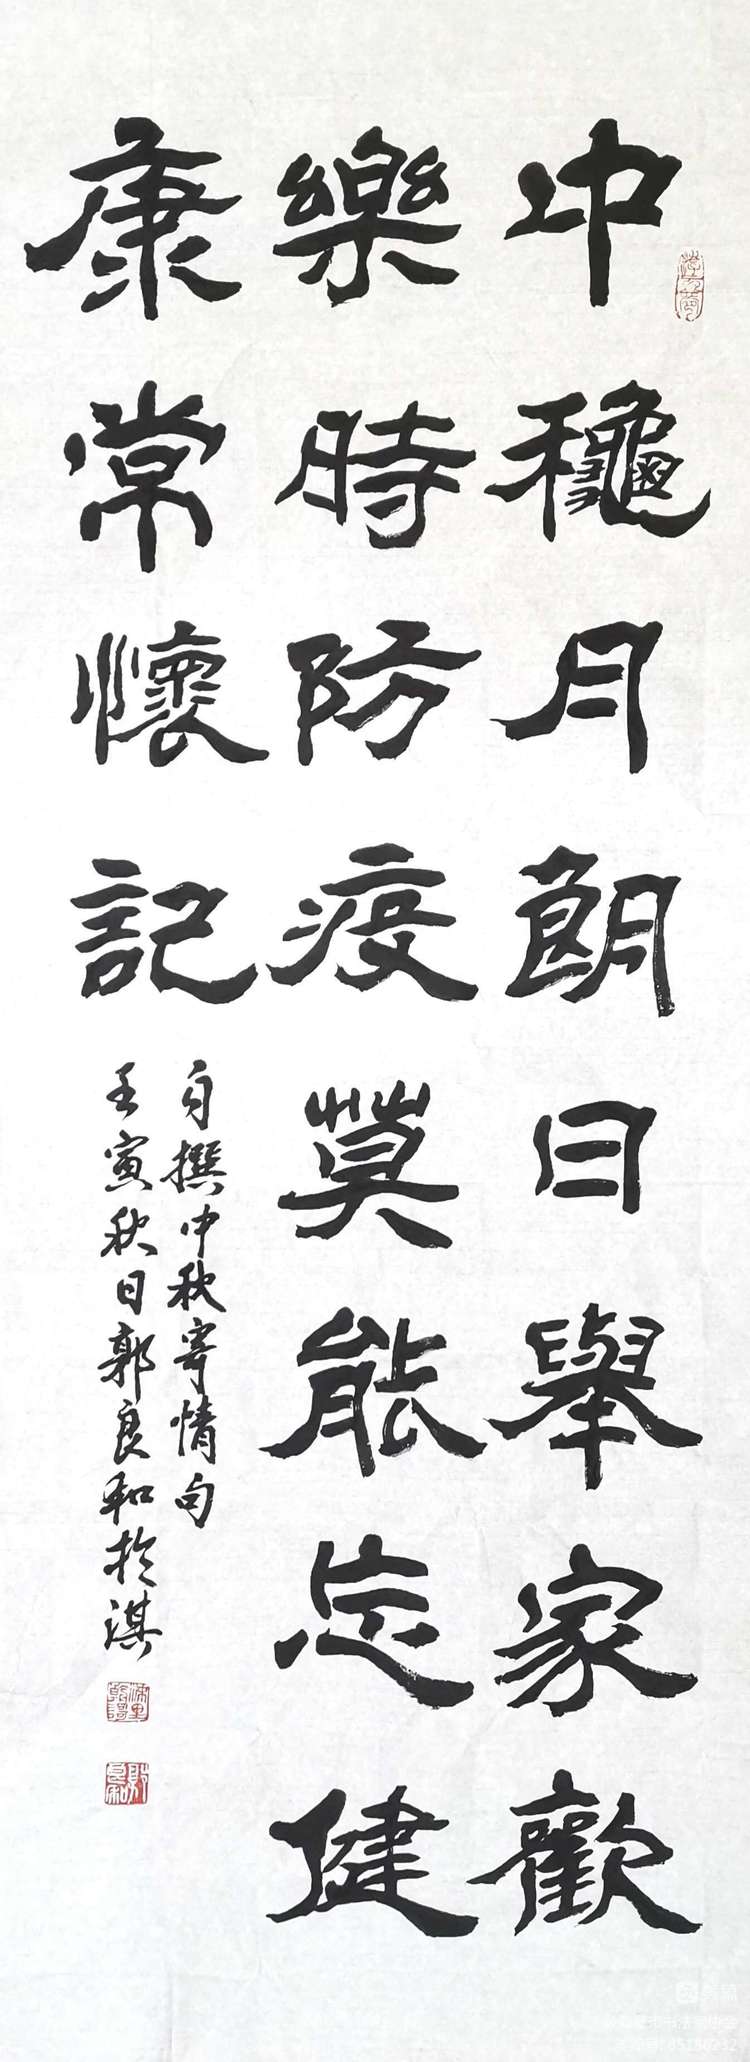 中龝月朗日舉家歡
樂時防疫莫能忘健
康常懷記
自撰中秋寄情句
壬寅秋日郭良和於淇